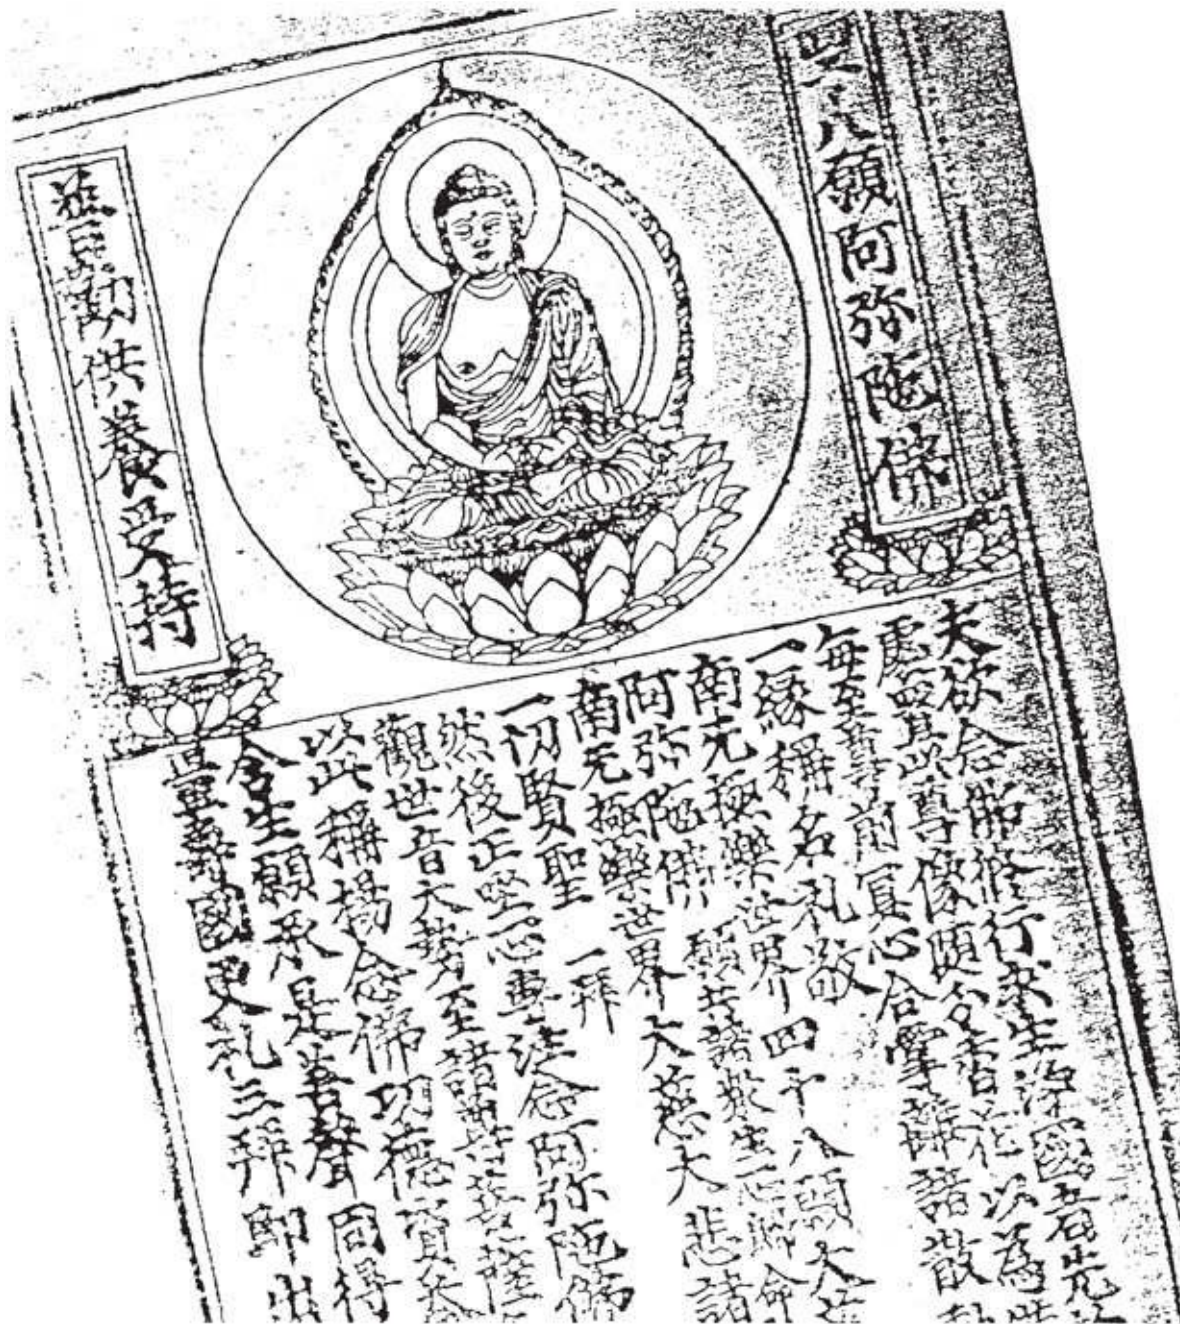 四十八願阿弥陁佛
普勸供養受持
夫欲念佛修行求生淨國者先於
處置其此尊像随分香花以為
每至尊前冥心合掌離諸散動
一緣稱名礼敬
南无極樂世界四十八願大慈
阿弥陁佛 願共諸衆生一心歸命
南无極樂世界大慈大悲諸
一切賢聖 一拜
然後正坐一心專注念阿弥陁佛
觀世音大勢至諸菩薩
以此稱揚念佛功德資益
含生願承是善聲同得
量壽國更礼三拜即出